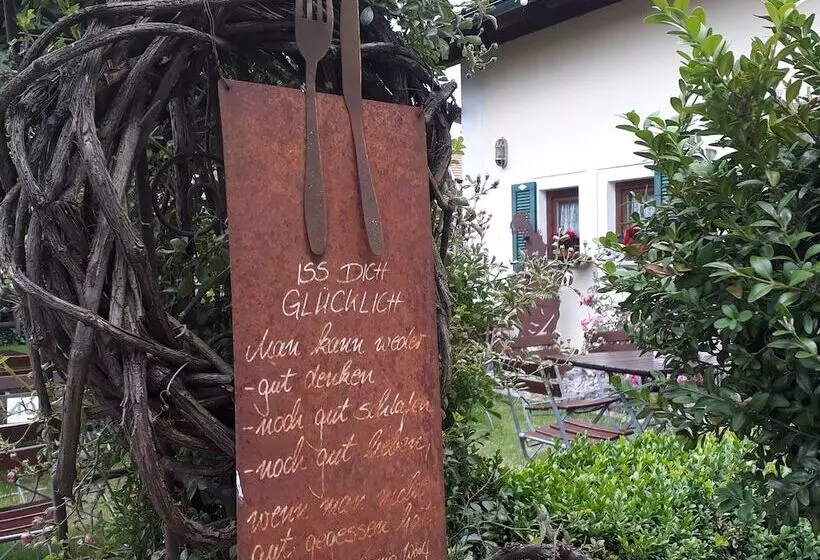 ISS DICH
GLÜCKLICH
Man kann weder
- gut denken
- noch gut schlafen
- noch gut lieben,
wenn man nicht
gut gegessen hat